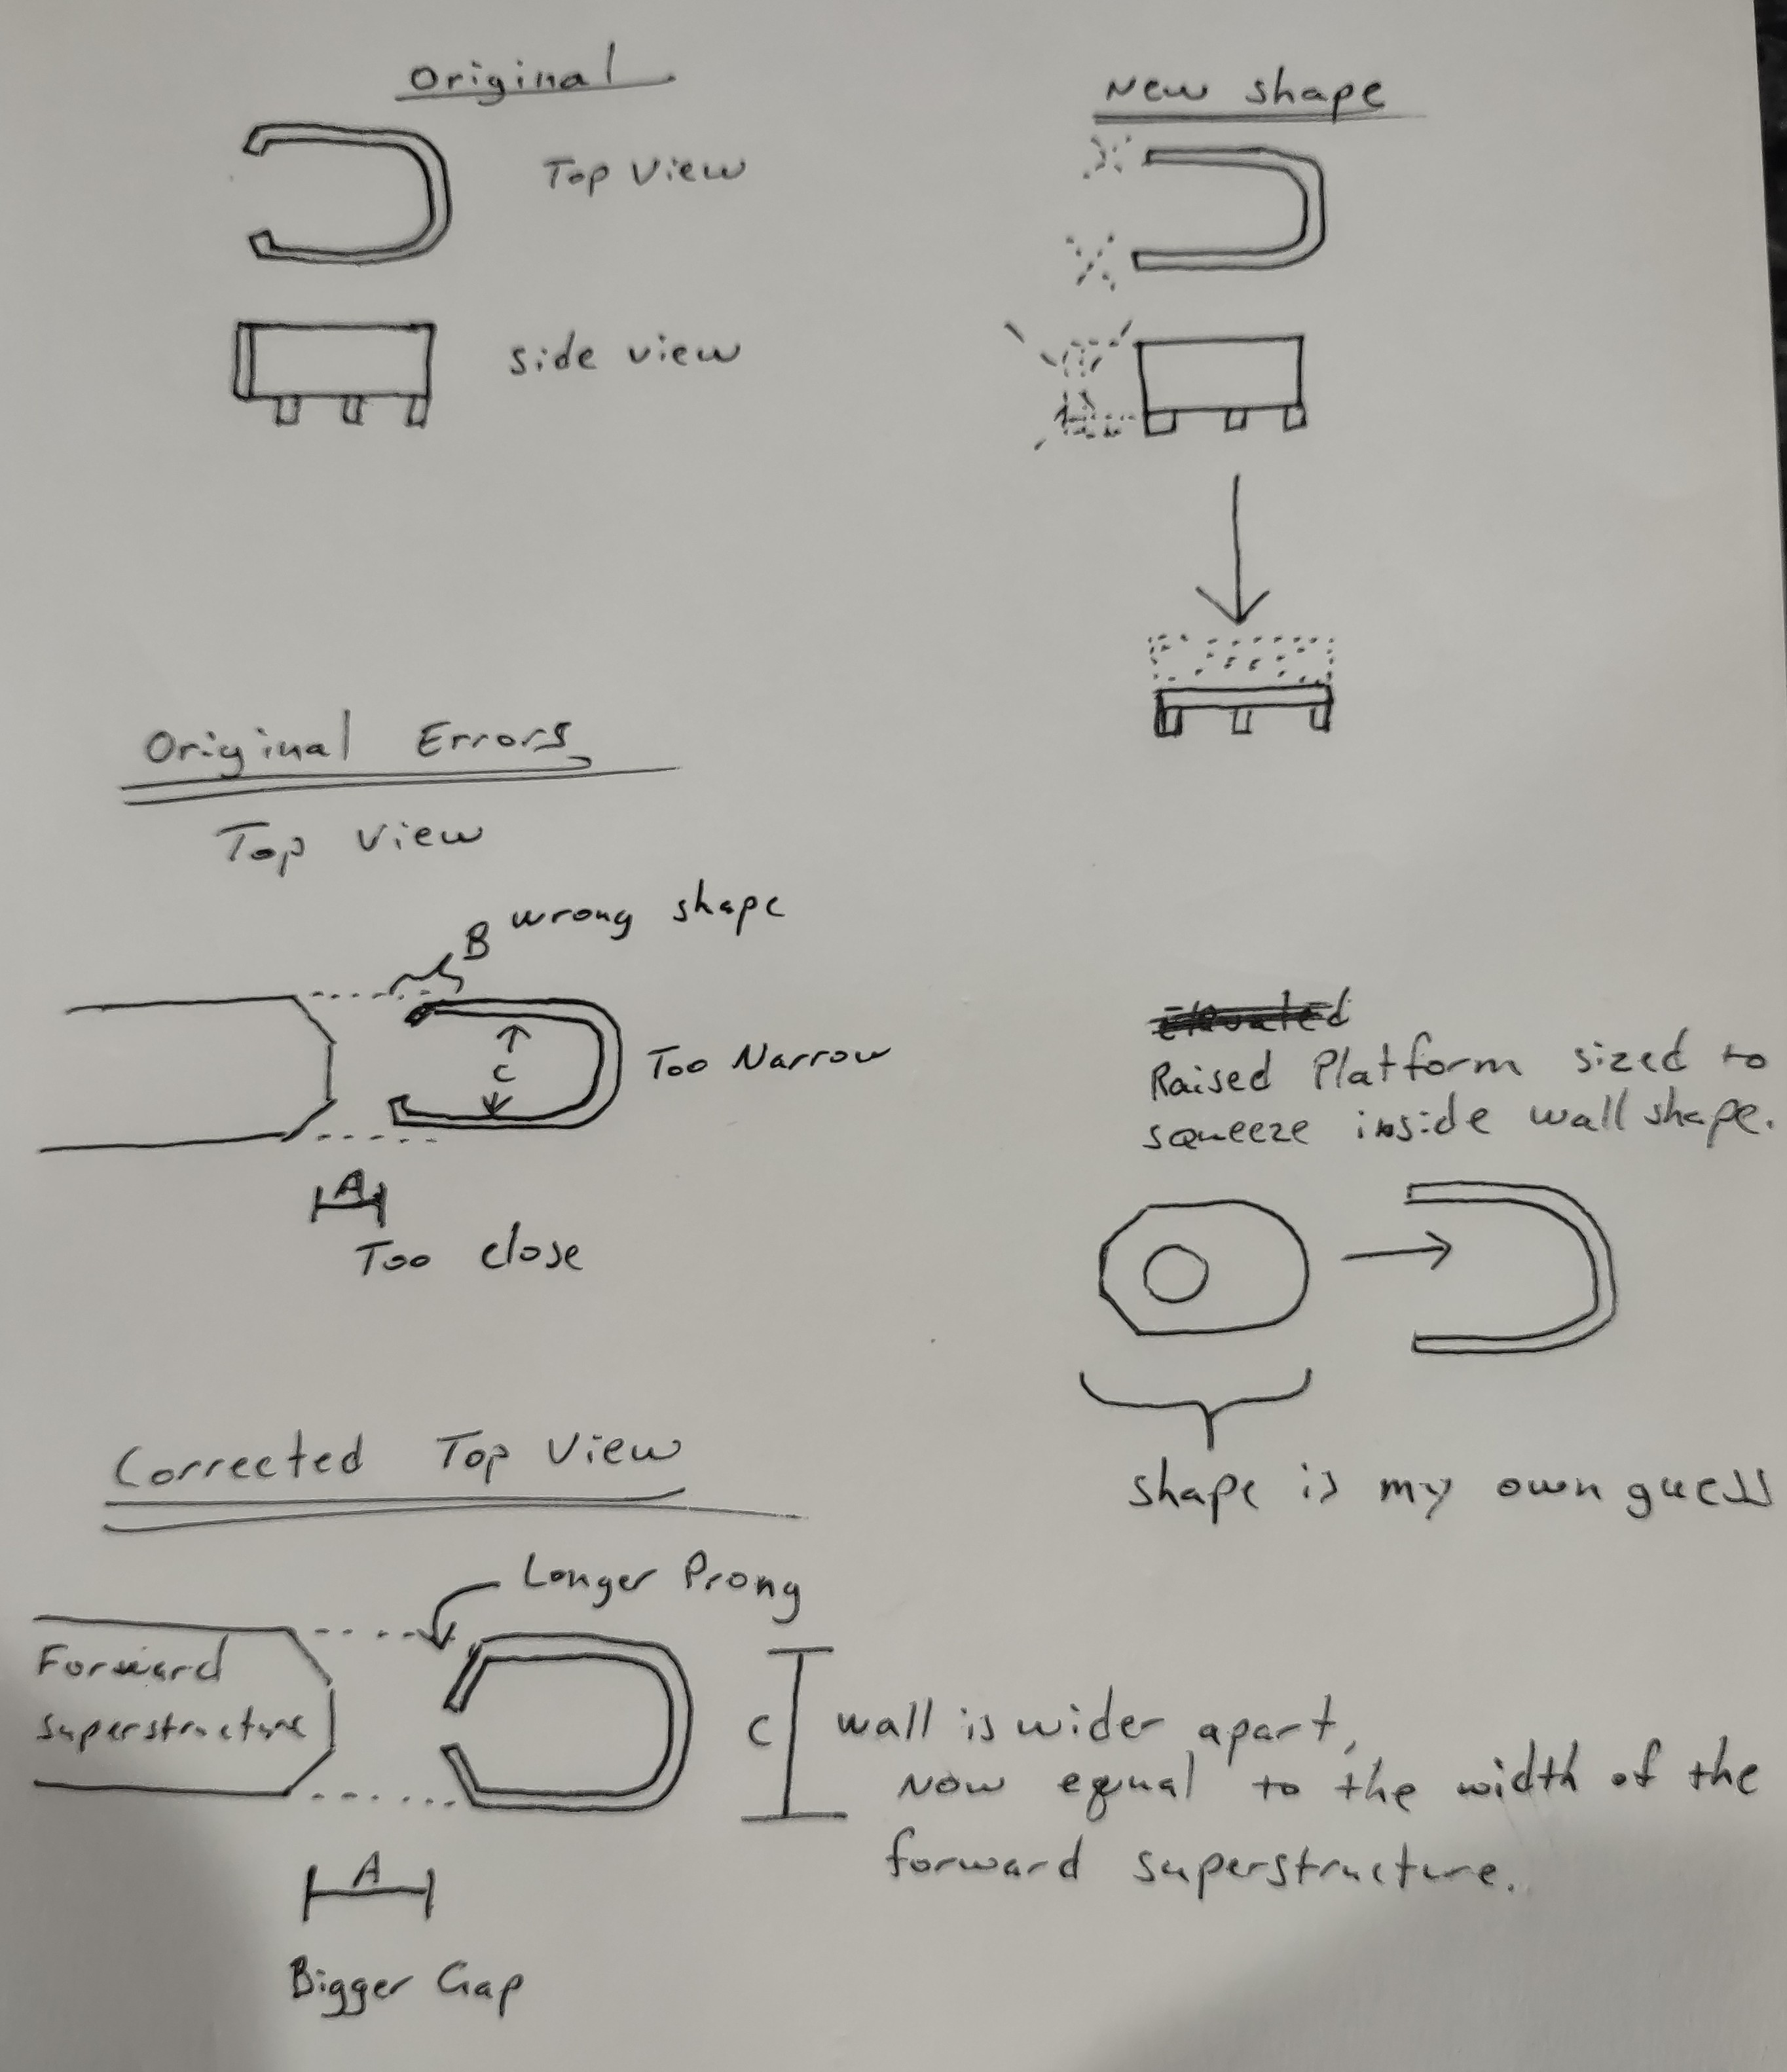 Original
Top View
side view
New shape
Original Errors
Top View
B wrong shape
C
Too Narrow
A
Too close
Elevated
Raised Platform sized to
squeeze inside wall shape.
shape is my own guess
Corrected Top View
Longer Prong
Forward
superstructure
C
wall is wider apart,
Now equal to the width of the
forward superstructure.
A
Bigger Gap